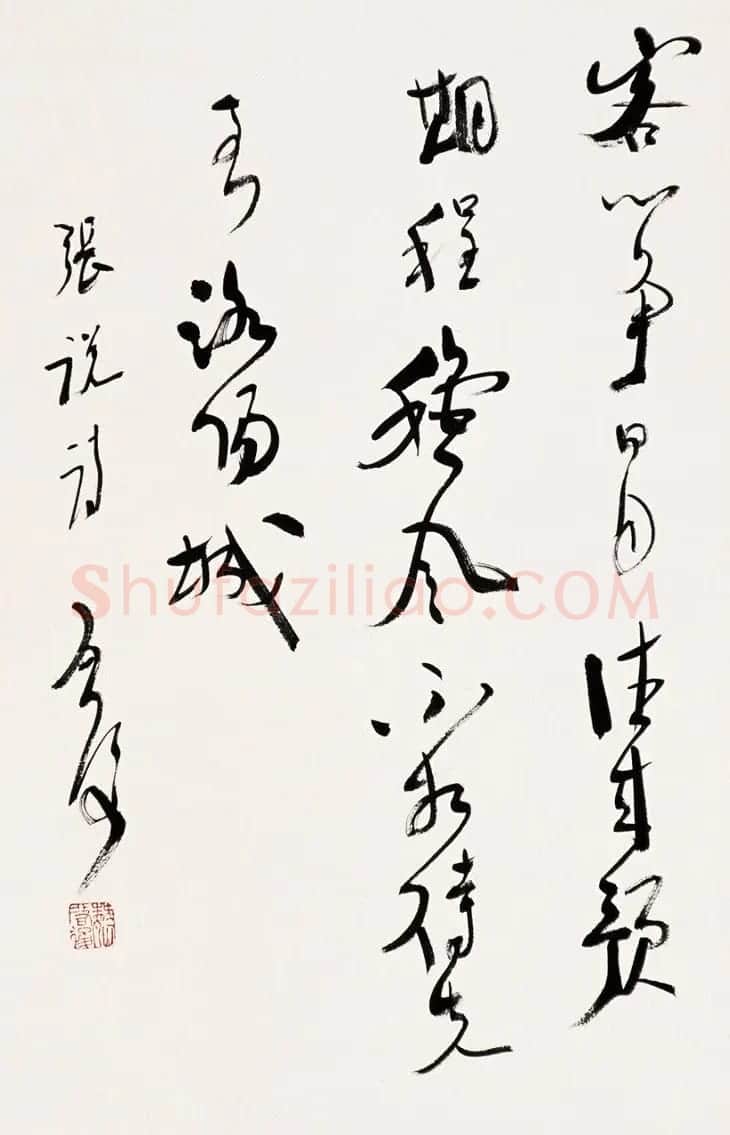 客心爭日月往来預
期程穐风不相待先
至洛陽城
張説詩 启後
Shufaziliao.COM